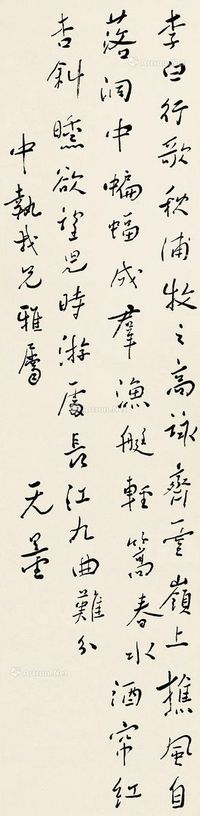 李白行歌秋浦牧之高詠齊雲嶺上樵風自
落澗中蝙蝠成群漁艇輕篙春水酒帘紅
杏斜曛欲望兒時游處長江九曲難分
中執我兄雅屬 无量